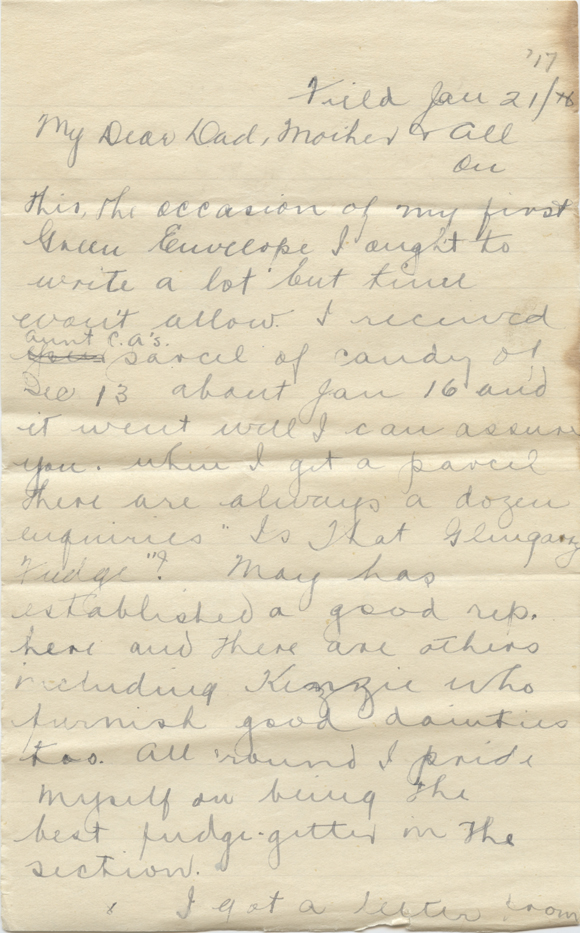 '17
Field Jan 21/
My Dear Dad, Mother & All
On
this, the occasion of my first
Green Envelope I ought to
write a lot but time
won't allow. I received
Aunt C.A's.
parcel of candy of
Dec 13 about Jan 16 and
it went well I can assure
you. When I get a parcel
there are always a dozen
enquiries "Is That Glengary
Fudge"? May has
established a good rep.
here and there are others
including Kenzie who
furnish good dainties
too. All 'round I pride
myself on being the
best fudge-getter in the
section.
I got a letter from